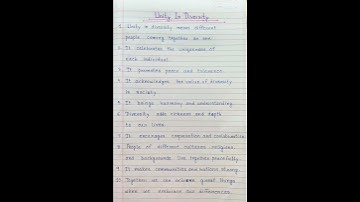 Unity In Diversity
1. Unity in diversity means different
people coming together as one.
2. It celebrates the uniqueness of
each individual.
3. It promotes peace and tolerance.
4. It acknowledges the value of diversity
in society.
5. It brings harmony and understanding.
6. Diversity adds richness and depth
to our lives.
7. It encourages cooperation and consideration.
8. People of different cultures, religions
and backgrounds live together peacefully.
9. It makes communities and nations strong.
10. Together we can achieve great things
when we embrace our differences.